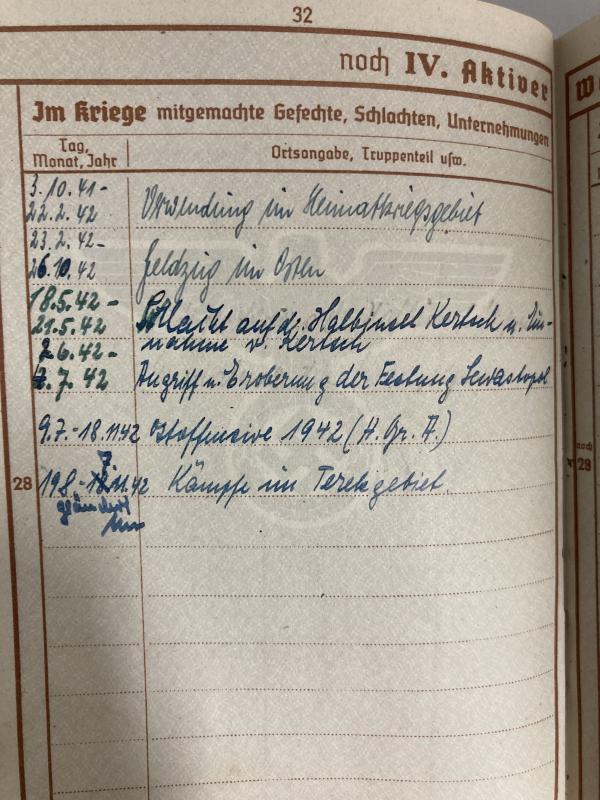 32
noch IV. Aktiver
Im Kriege mitgemachte Gefechte, Schlachten, Unternehmungen
Tag, Monat, Jahr
Ortsangabe, Truppenteil usw.
3.10.41-
22.2.42 Verwendung im Heimatkriegsgebiet
23.2.42-
26.10.42 Feldzug im Osten
18.5.42 - Schlacht auf d. Halbinsel Kertsch u. Ein-
21.5.42 nahme v. Kertsch
2.6.42-
4.7.42 Angriff u. Eroberung der Festung Sewastopol
9.7.-18.11.42 Ostoffensive 1942 (H. Gr. A.)
7.
28 19.8-18.11.42 Kämpfe im Terekgebiet
geändert
noch
28